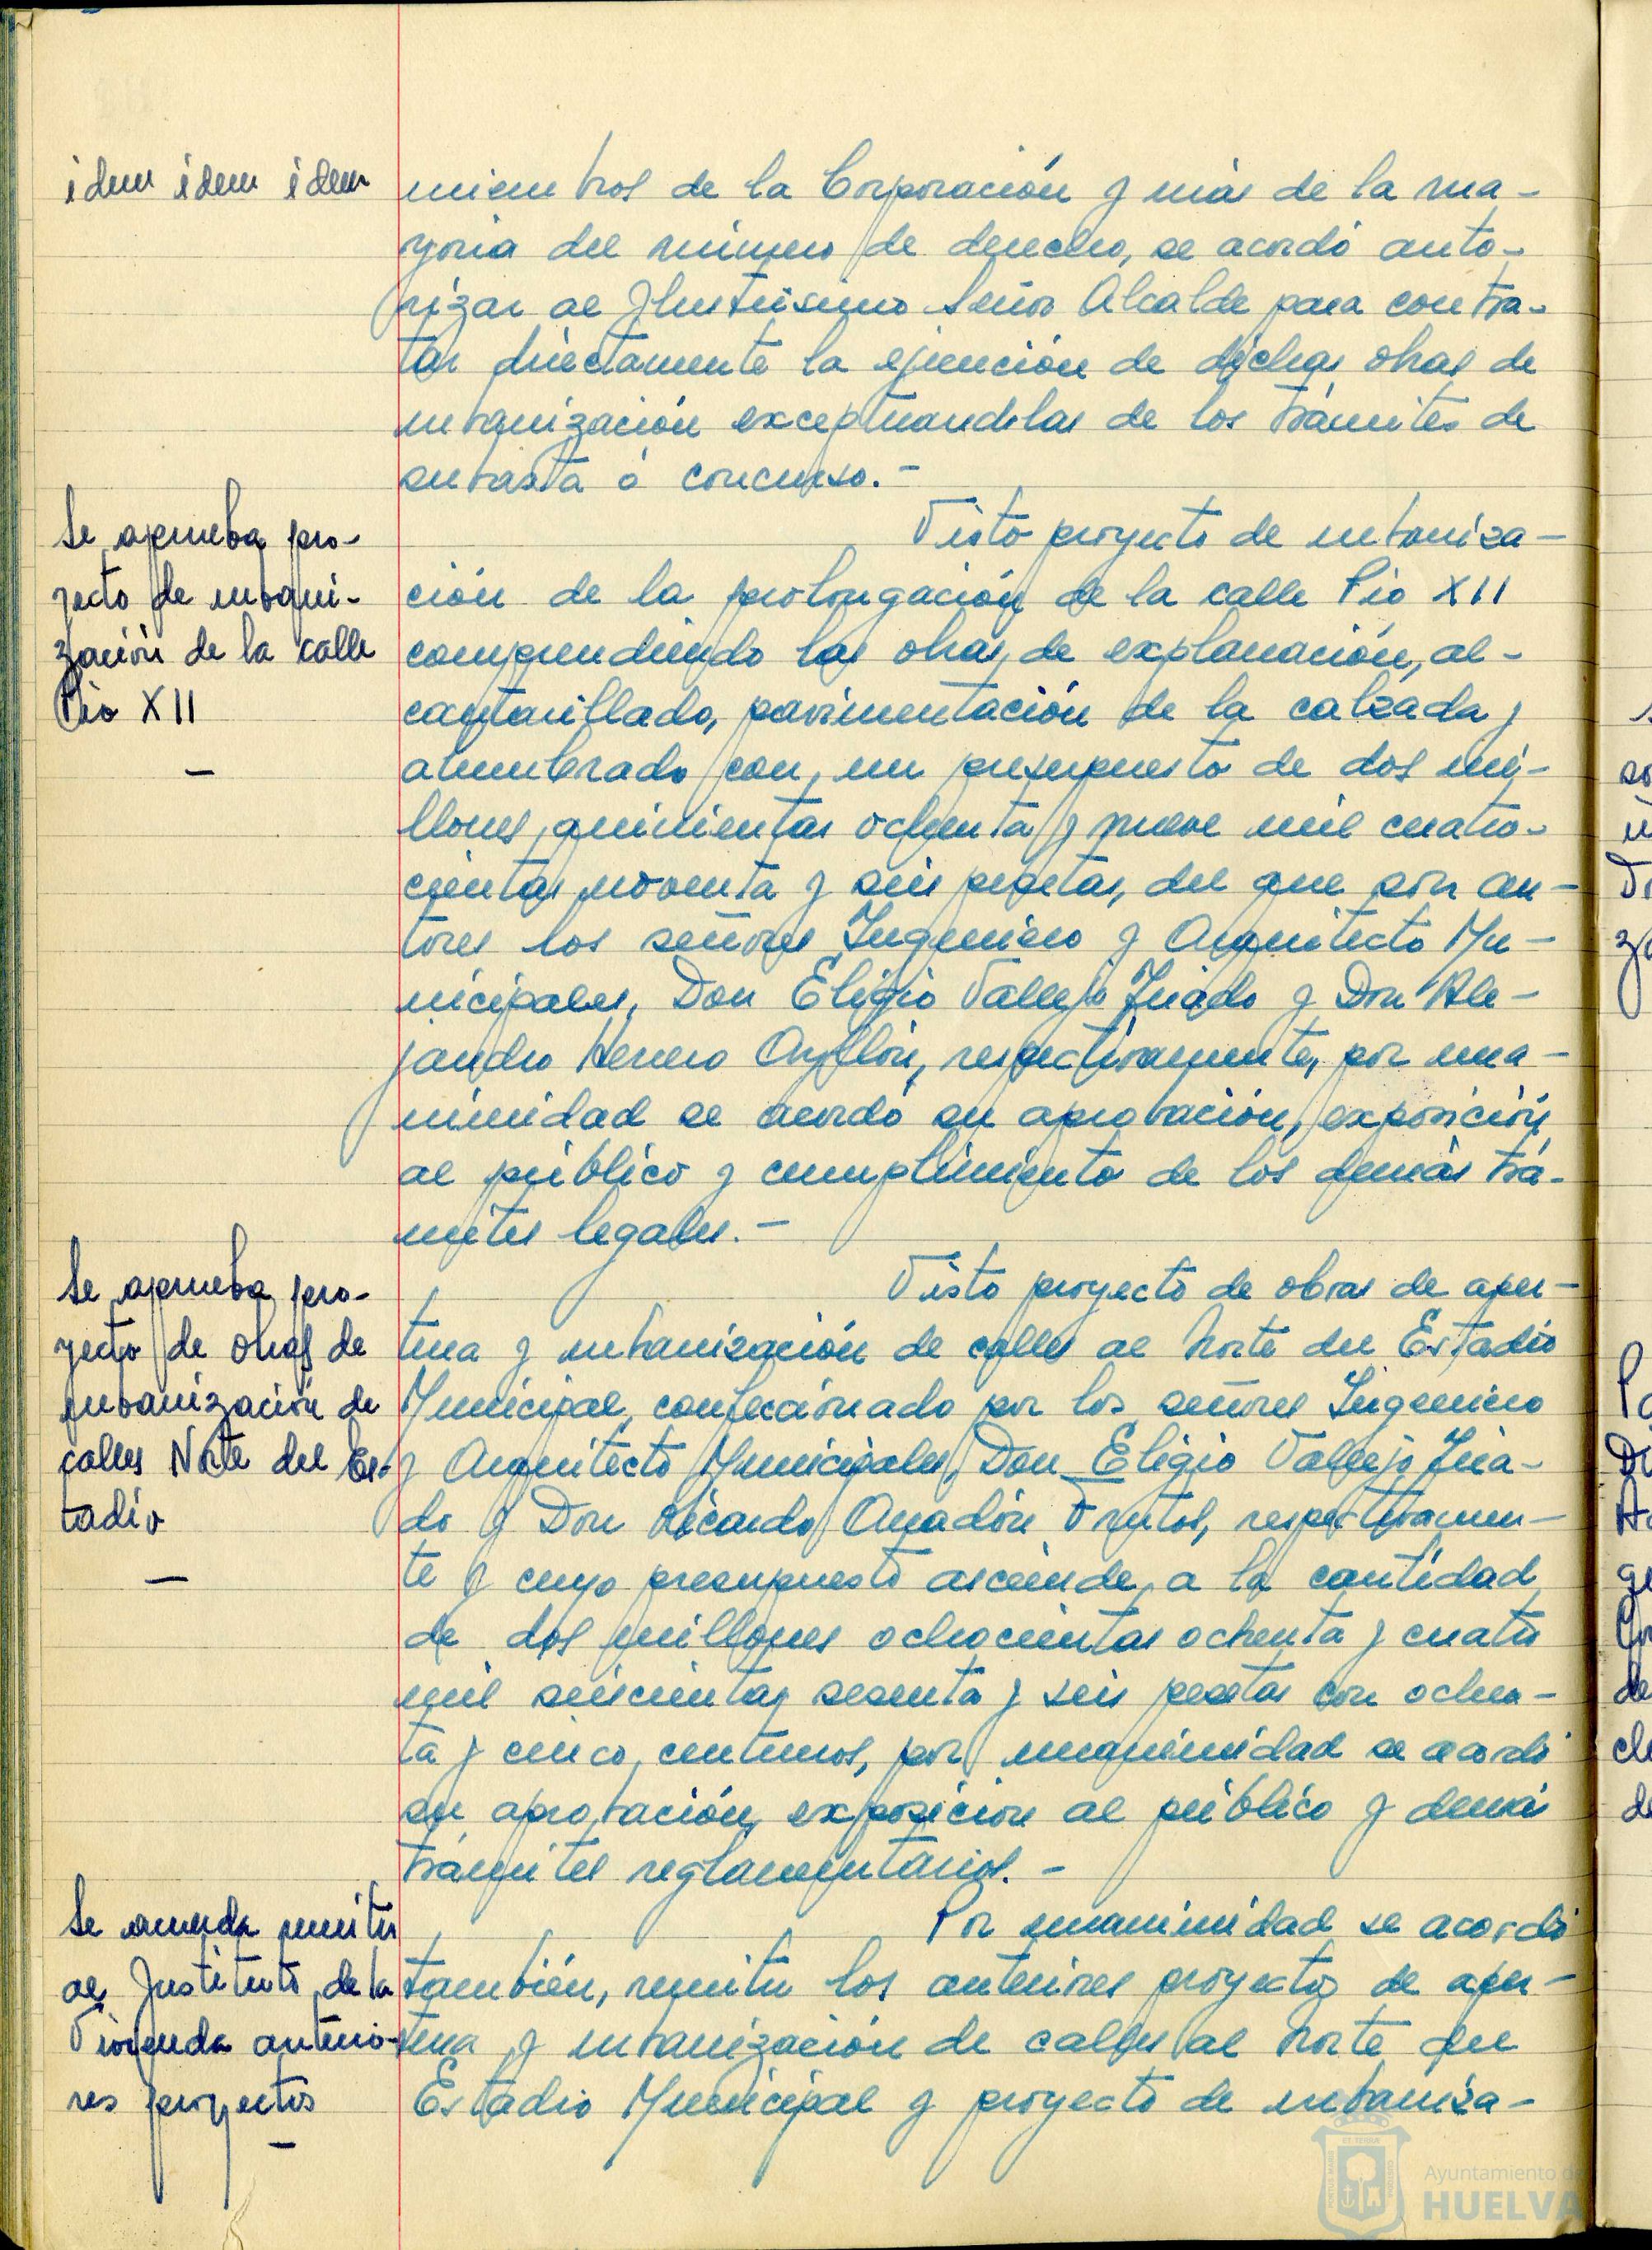 idem idem idem
miembros de la Corporación y más de la ma-
yoria del número de derecho, se acordó auto-
rizar al Ilustrisimo Señor Alcalde para contra-
tar directamente la ejecución de dichas obras de
urbanización exceptuandolas de los trámites de
subasta ó concurso.-
Se aprueba pro-
yecto de urbani-
zación de la calle
Pio XII
—
Visto proyecto de urbaniza-
ción de la prolongación de la calle Pio XII
comprendiendo las obras de explanación, al-
cantarillado, pavimentación de la calzada y
alumbrado con un presupuesto de dos mi-
llones quinientas ochenta y nueve mil cuatro-
cientas noventa y seis pesetas, del que son au-
tores los señores Ingeniero y Arquitecto Mu-
nicipales, Don Eligio Vallejo Tirado y Don Ale-
jandro Herrero Ayllón, respectivamente, por una-
nimidad se acordó su aprobación, exposición
al público y cumplimiento de los demás trá-
mites legales.-
Se aprueba pro-
yecto de obras de
urbanización de
calles Norte del Es-
tadio
—
Visto proyecto de obras de aper-
tura y urbanización de calles al Norte del Estadio
Municipal, confeccionado por los señores Ingeniero
y Arquitecto Municipales, Don Eligio Vallejo Tira-
do y Don Ricardo Anadón Frutos, respectivamen-
te y cuyo presupuesto asciende a la cantidad
de dos millones ochocientas ochenta y cuatro
mil seiscientas sesenta y seis pesetas con ochen-
ta y cinco centimos, por unanimidad se acordó
su aprobación, exposición al público y demás
trámites reglamentarios.-
Se acuerda remitir
al Instituto de la
Vivienda anterio-
res proyectos
—
Por unanimidad se acordó
también, remitir los anteriores proyectos de aper-
tura y urbanización de calles al Norte del
Estadio Municipal y proyecto de urbaniza-
Ayuntamiento de
HUELVA